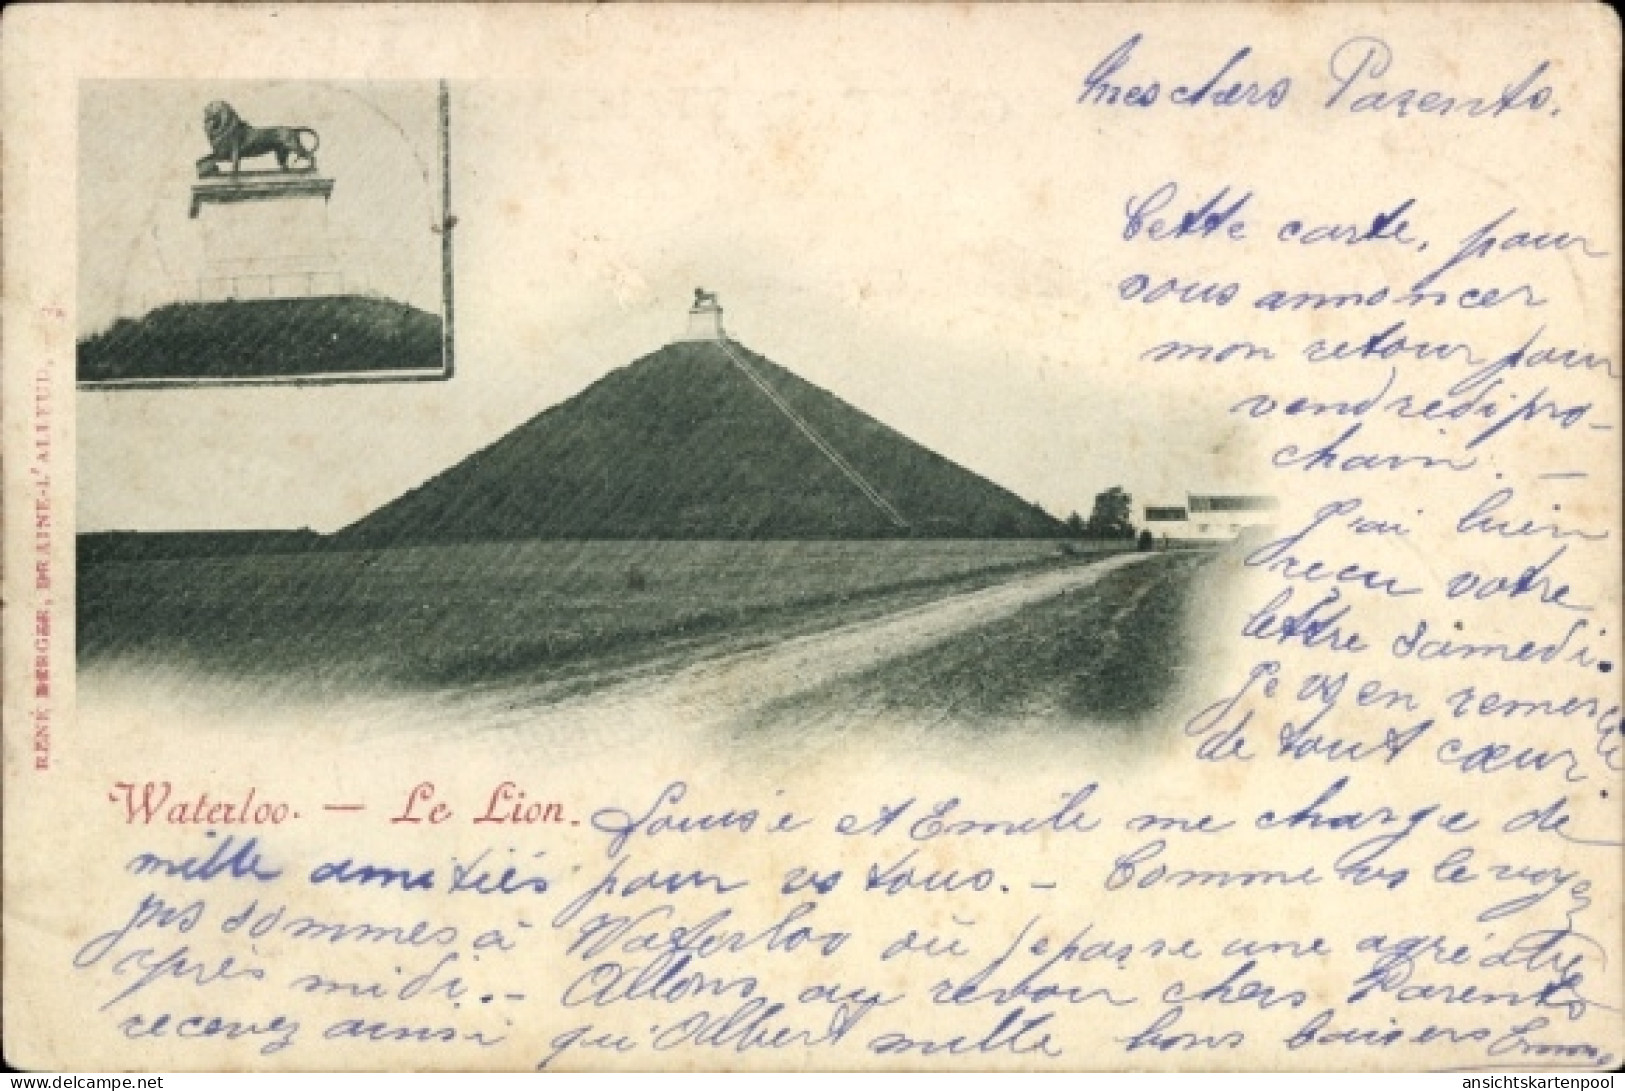 Mes chers Parents.
Cette carte, pour
vous annoncer
mon retour pour
vendredi pro-
chain. —
J'ai bien
reçu votre
lettre Samedi.
Je vs en remercie
de tout cœur.
RENÉ BERGER, BRAINE-L'ALLEUD,
Waterloo. — Le Lion.
Louise et Emile me charge de
mille amitiés pour vs tous. — Comme vs le voyez
ns sommes à Waterloo où je passe une agréable
après midi. — Allons au revoir chers Parents
recevez ainsi qu'Albert mille bons baisers
ansichtskartenpool.de
ansichtskartenpool